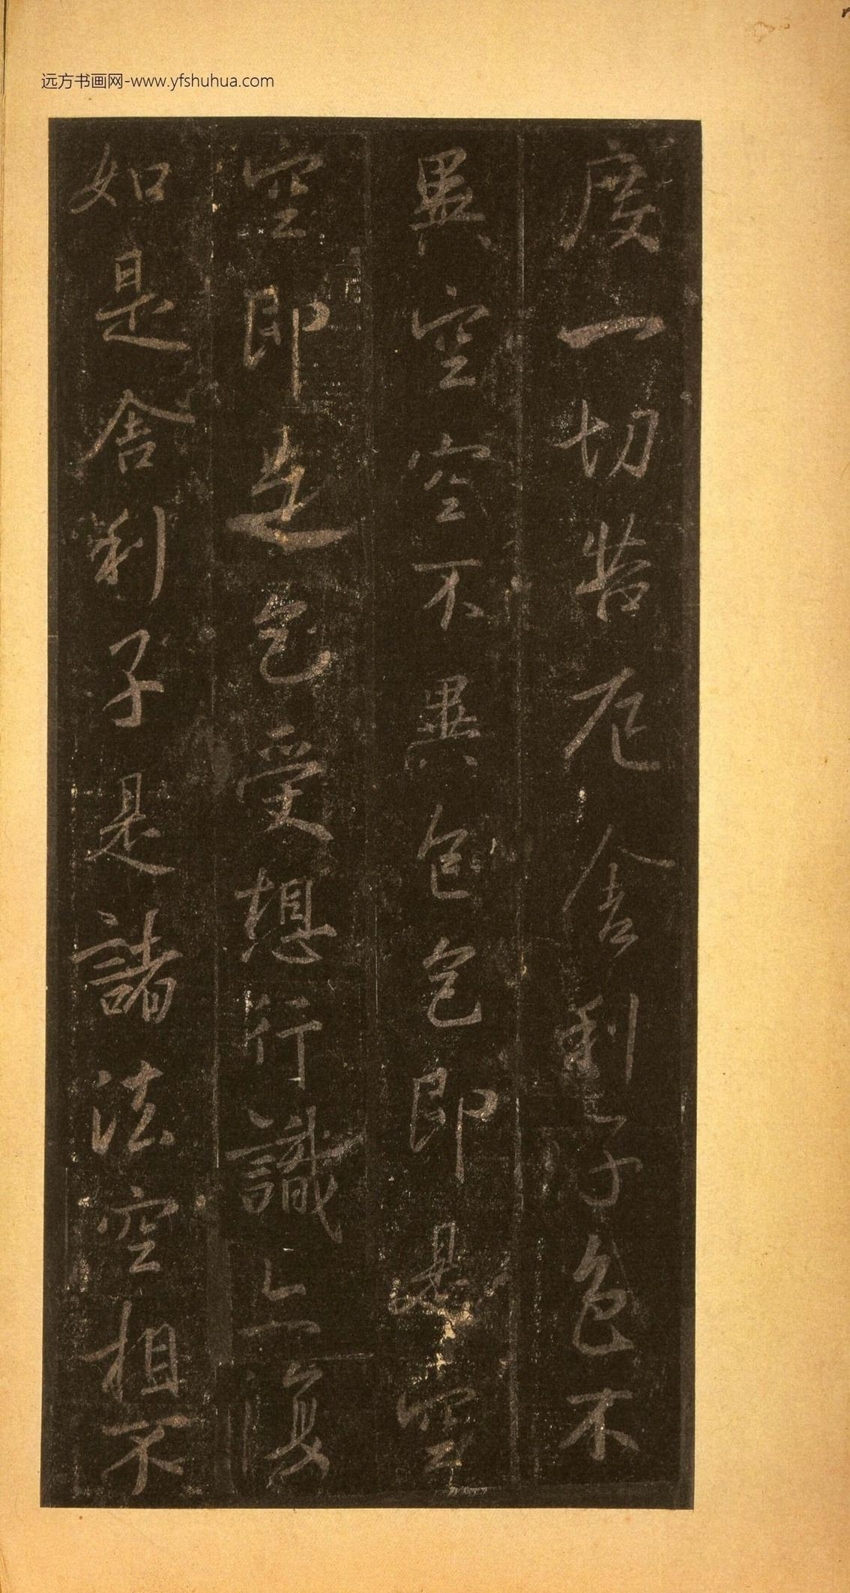 远方书画网-www.yfshuhua.com
度一切苦厄舍利子色不
異空空不異色色即是空
空即是色受想行識亦復
如是舍利子是諸法空相不